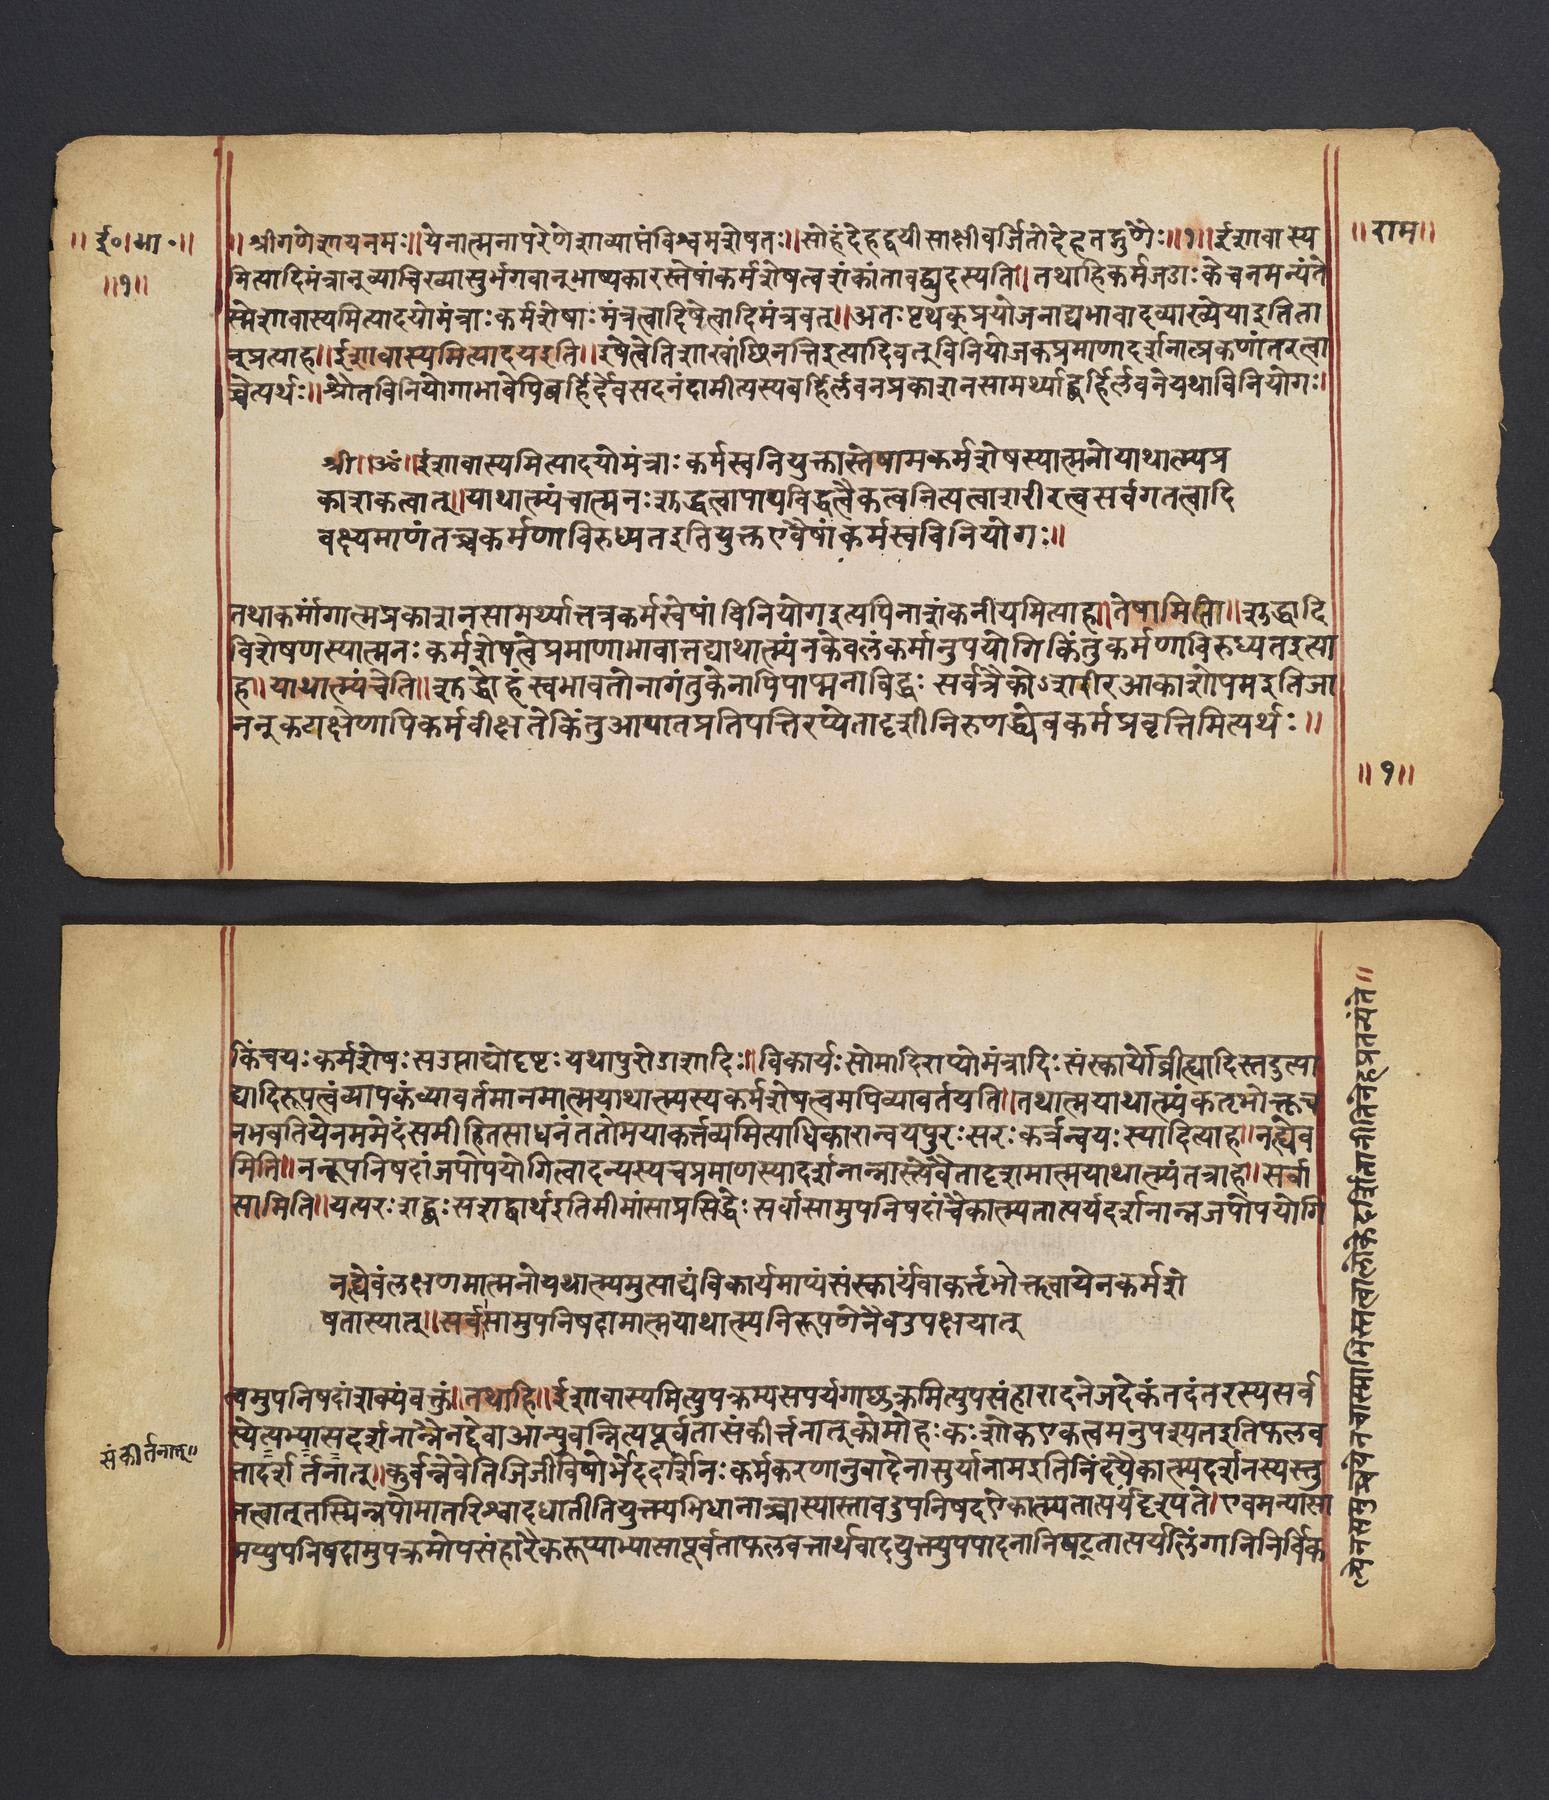 ॥ ई॰ । भा ॰ ॥
॥ १ ॥
॥ राम ॥
॥ श्रीगणेशायनमः ॥ येनात्मनापरेणेशाव्याप्तंविश्वमशेषतः ॥ सोहंदेहद्वयीसाक्षीवर्जितोदेहतद्गुणैः ॥ १ ॥ ईशावास्य
मित्यादिमंत्रानुव्याचिख्यासुर्भगवानुभाष्यकारस्तेषांकर्मशेषत्वशंकांतावद्व्युदस्यति ॥ तथाहिकर्मजडाःकेचनमन्यंते
स्मेशावास्यमित्यादयोमंत्राःकर्मशेषाःमंत्रत्वादिषेत्वादिमंत्रवत् ॥ अतःपृथक्प्रयोजनाद्यभावादव्याख्येयाइतिता
न्प्रत्याह ॥ ईशावास्यमित्यादयइति ॥ इषेत्वेतिशाखांछिनत्तिइत्यादिवत्विनियोजकप्रमाणादर्शनात्प्रकर्णांतरत्वा
च्चेत्यर्थः ॥ श्रौतविनियोगाभावेपिबर्हिर्देवसदनंदामीत्यस्यबर्हिर्लवनप्रकाशनसामर्थ्याद्बर्हिर्लवनेयथाविनियोगः ।
श्री ॥ ॐ ॥ ईशावास्यमित्यादयोमंत्राःकर्मस्वनियुक्तास्तेषामकर्मशेषस्यात्मनोयाथात्म्यप्र
काशकत्वात् ॥ याथात्म्यंचात्मनःशुद्धत्वापापविद्धत्वैकत्वनित्यत्वाशरीरत्वसर्वगतत्वादि
वक्ष्यमाणंतच्चकर्मणाविरुध्यतइतियुक्तएवैषांकर्मस्वविनियोगः ॥
तथाकर्मांगात्मप्रकाशनसामर्थ्यात्तत्रकर्मस्वेषांविनियोगइत्यपिनाशंकनीयमित्याह ॥ तेषामिति ॥ शुद्धादि
विशेषणस्यात्मनःकर्मशेषत्वेप्रमाणाभावात्तद्याथात्म्यंनकेवलंकर्मानुपयोगिकिंतुकर्मणाविरुध्यतइत्या
ह ॥ याथात्म्यंचेति ॥ शुद्धोहंस्वभावतोनागंतुकेनापिपाप्मनाविद्धः सर्वत्रैकोऽशरीरआकाशोपमइतिजा
नन्कटाक्षेणापिकर्मवीक्षतेकिंतुआपातप्रतिपत्तिरप्येतादृशीनिरुणद्ध्येवकर्मप्रवृत्तिमित्यर्थः ॥
॥ १ ॥
किंचयःकर्मशेषःसउत्पाद्योदृष्टःयथापुरोडाशादिः ॥ विकार्यःसोमादिराप्योमंत्रादिःसंस्कार्योव्रीह्यादिस्तदुत्पा
द्यादिरूपत्वंव्यापकंव्यावर्तमानमात्मयाथात्म्यस्यकर्मशेषत्वमपिव्यावर्तयति ॥ तथात्मयाथात्म्यंकर्तृभोक्तृच
नभवतियेनममेदंसमीहितसाधनंततोमयाकर्त्तव्यमित्याधिकारान्वयपुरःसरःकर्त्रन्वयःस्यादित्याह ॥ नह्येव
मिति ॥ ननूपनिषदांजपोपयोगित्वादन्यस्यचप्रमाणस्यादर्शनान्नास्त्येवैतादृशमात्मयाथात्म्यंतत्राह ॥ सर्वा
सामिति ॥ यत्परःशब्दःसशब्दार्थइतिमीमांसाप्रसिद्धेःसर्वासामुपनिषदांचैकात्म्यतात्पर्यदर्शनान्नजपोपयोगि
नह्येवंलक्षणमात्मनोयथात्म्यमुत्पाद्यंविकार्यमाप्यंसंस्कार्यंवाकर्त्तृभोक्तृवायेनकर्मशे
षतास्यात् ॥ सर्वसामुपनिषदामात्मयाथात्म्यनिरूपणेनैवउपक्षयात्
त्वमुपनिषदांशक्यंवक्तुं । तथाहि ॥ ईशावास्यमित्युपक्रम्यसपर्यगाच्छुक्रमित्युपसंहारादनेजदेकंतदंतरस्यसर्व
स्येत्यभ्यासदर्शनान्नैनद्देवाआप्नुवन्नित्यपूर्वतासंकीर्त्तनात्कोमोहःकःशोकएकत्वमनुपश्यतइतिफलव
त्तादर्श र्तनात् ॥ कुर्वन्नेवेतिजिजीविषोर्भेददर्शिनःकर्मकरणानुवादेनासुर्यानामइतिनिंदयैकात्म्यदर्शनस्यस्तु
तत्वात्तस्मिन्नपोमातरिश्वादधातीतियुक्त्यभिधानाच्चास्यास्तावदुपनिषदऐकात्म्यतात्पर्यंदृश्यते । एवमन्यासा
मप्युपनिषदामुपक्रमोपसंहारैकरूप्याभ्यासापूर्वताफलवत्तार्थवादयुक्त्युपपादनानिषट्तात्पर्यलिंगानिनिर्विक
संकीर्तनात् ॥